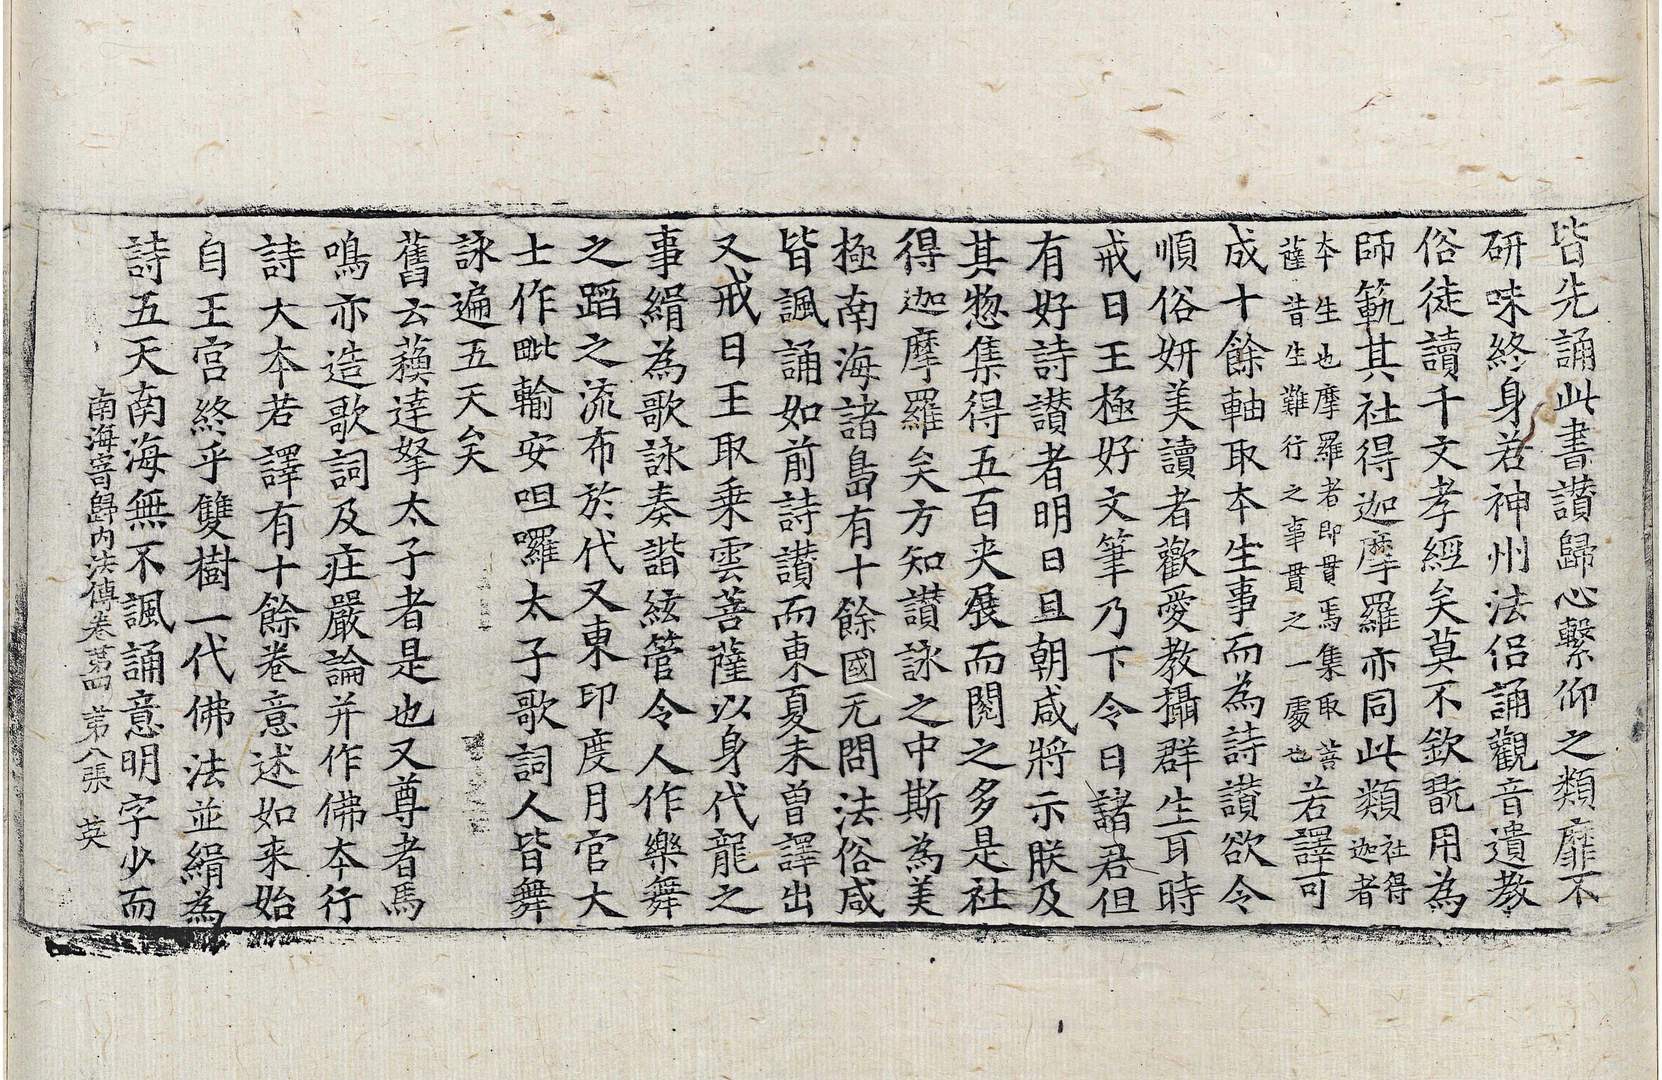 皆先誦此書讃歸心繫仰之類靡不
研味終身若神州法侶誦觀音遺教
俗徒讀千文孝經矣莫不欽翫用為
師範其社得迦摩羅亦同此類社得迦者
本生也摩羅者即貫焉集取菩薩昔生難行之事貫之一處也若譯可
成十餘軸取本生事而為詩讃欲令
順俗妍美讀者歡愛教攝群生耳時
戒日王極好文筆乃下令曰諸君但
有好詩讃者明日旦朝咸將示朕及
其惣集得五百夹展而閱之多是社
得迦摩羅矣方知讃詠之中斯為美
極南海諸島有十餘國无問法俗咸
皆諷誦如前詩讃而東夏未曾譯出
又戒日王取乗雲菩薩以身代龍之
事緝為歌詠奏諧絃管令人作樂舞
之蹈之流布於代又東印度月官大
士作毗輸安呾囉太子歌詞人皆舞
詠遍五天矣
舊云蘓達拏太子者是也又尊者馬
鳴亦造歌詞及庄嚴論并作佛本行
詩大本若譯有十餘卷意述如来始
自王宮終乎雙樹一代佛法並緝為
詩五天南海無不諷誦意明字少而
南海寄歸内法傳卷第四 第八張 英